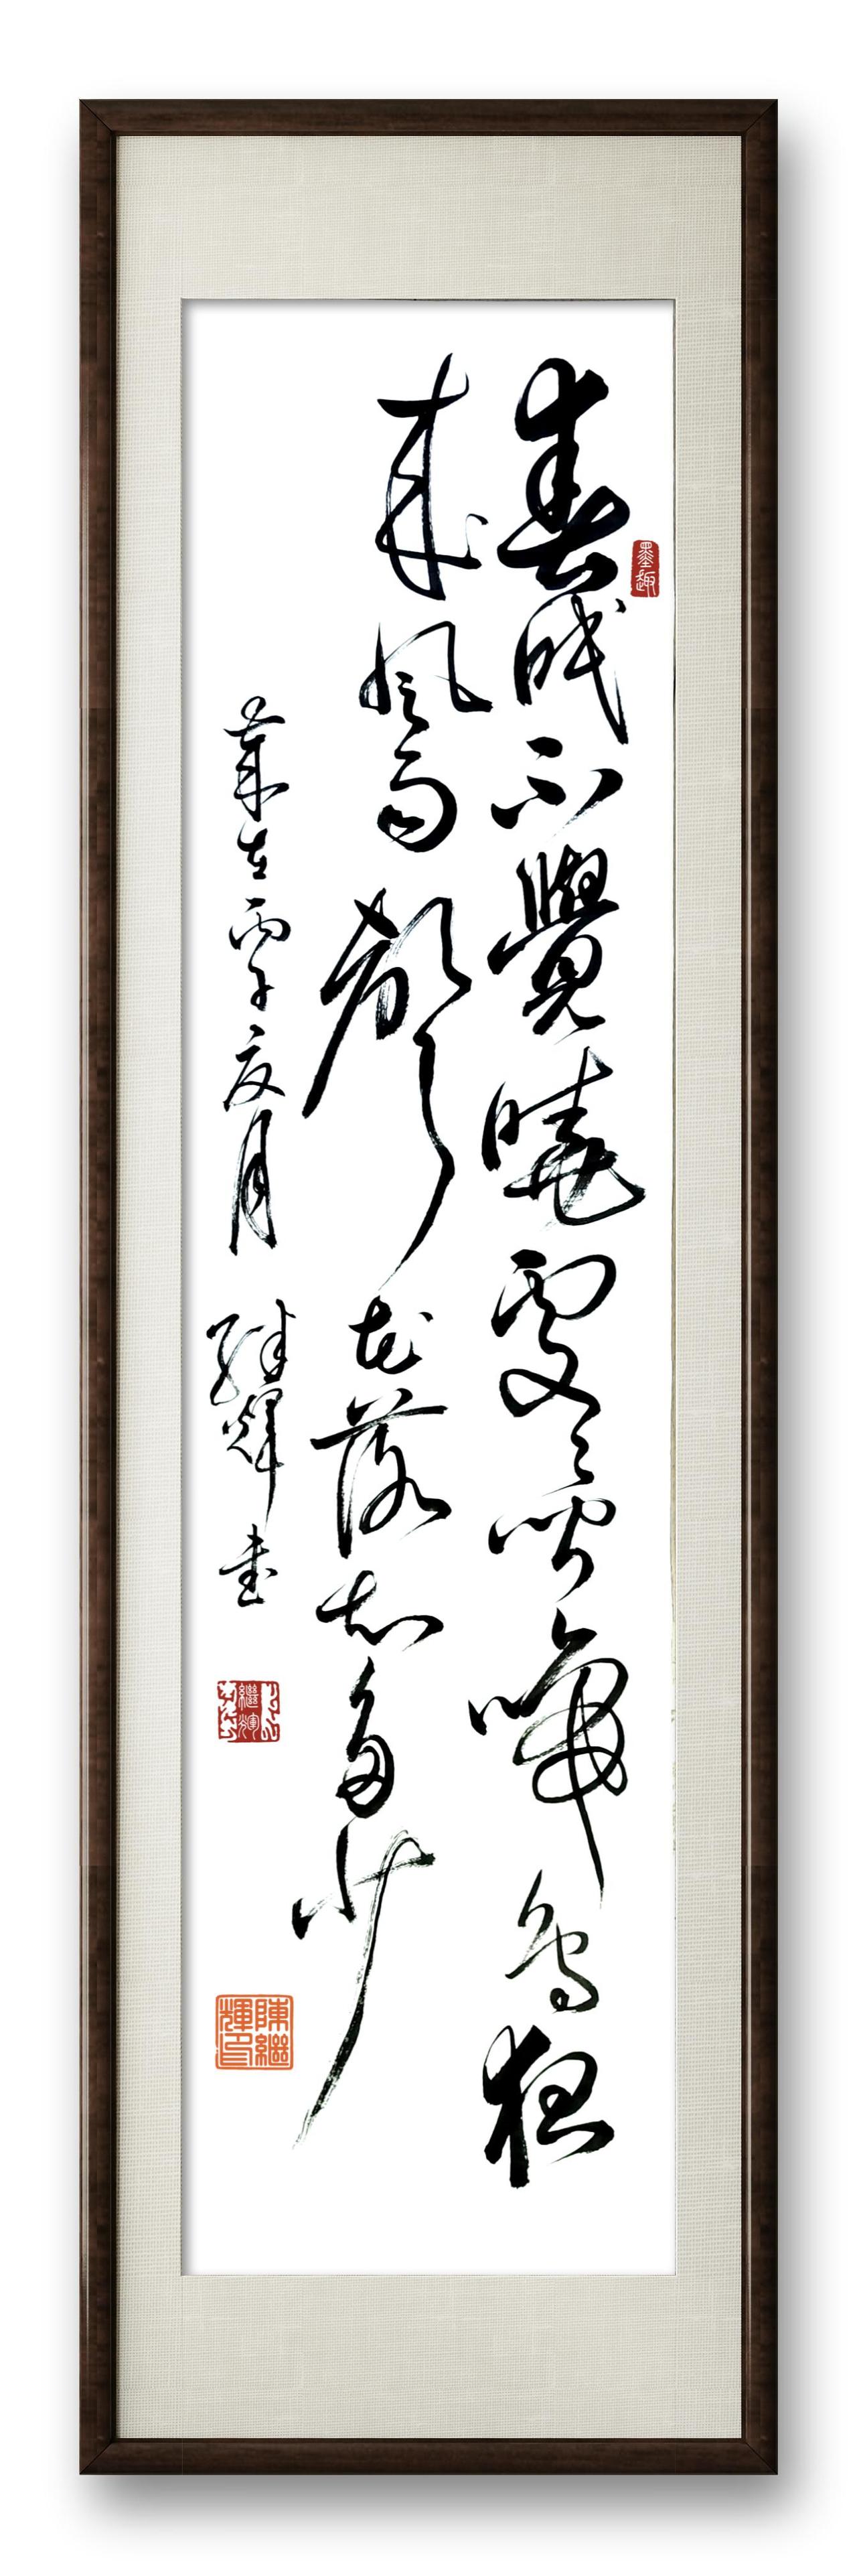 墨趣
春眠不覺曉處〻聞啼鳥夜
來風雨聲花落知多少
歲在丙子夏月 繼輝書
繼輝
陳繼輝印